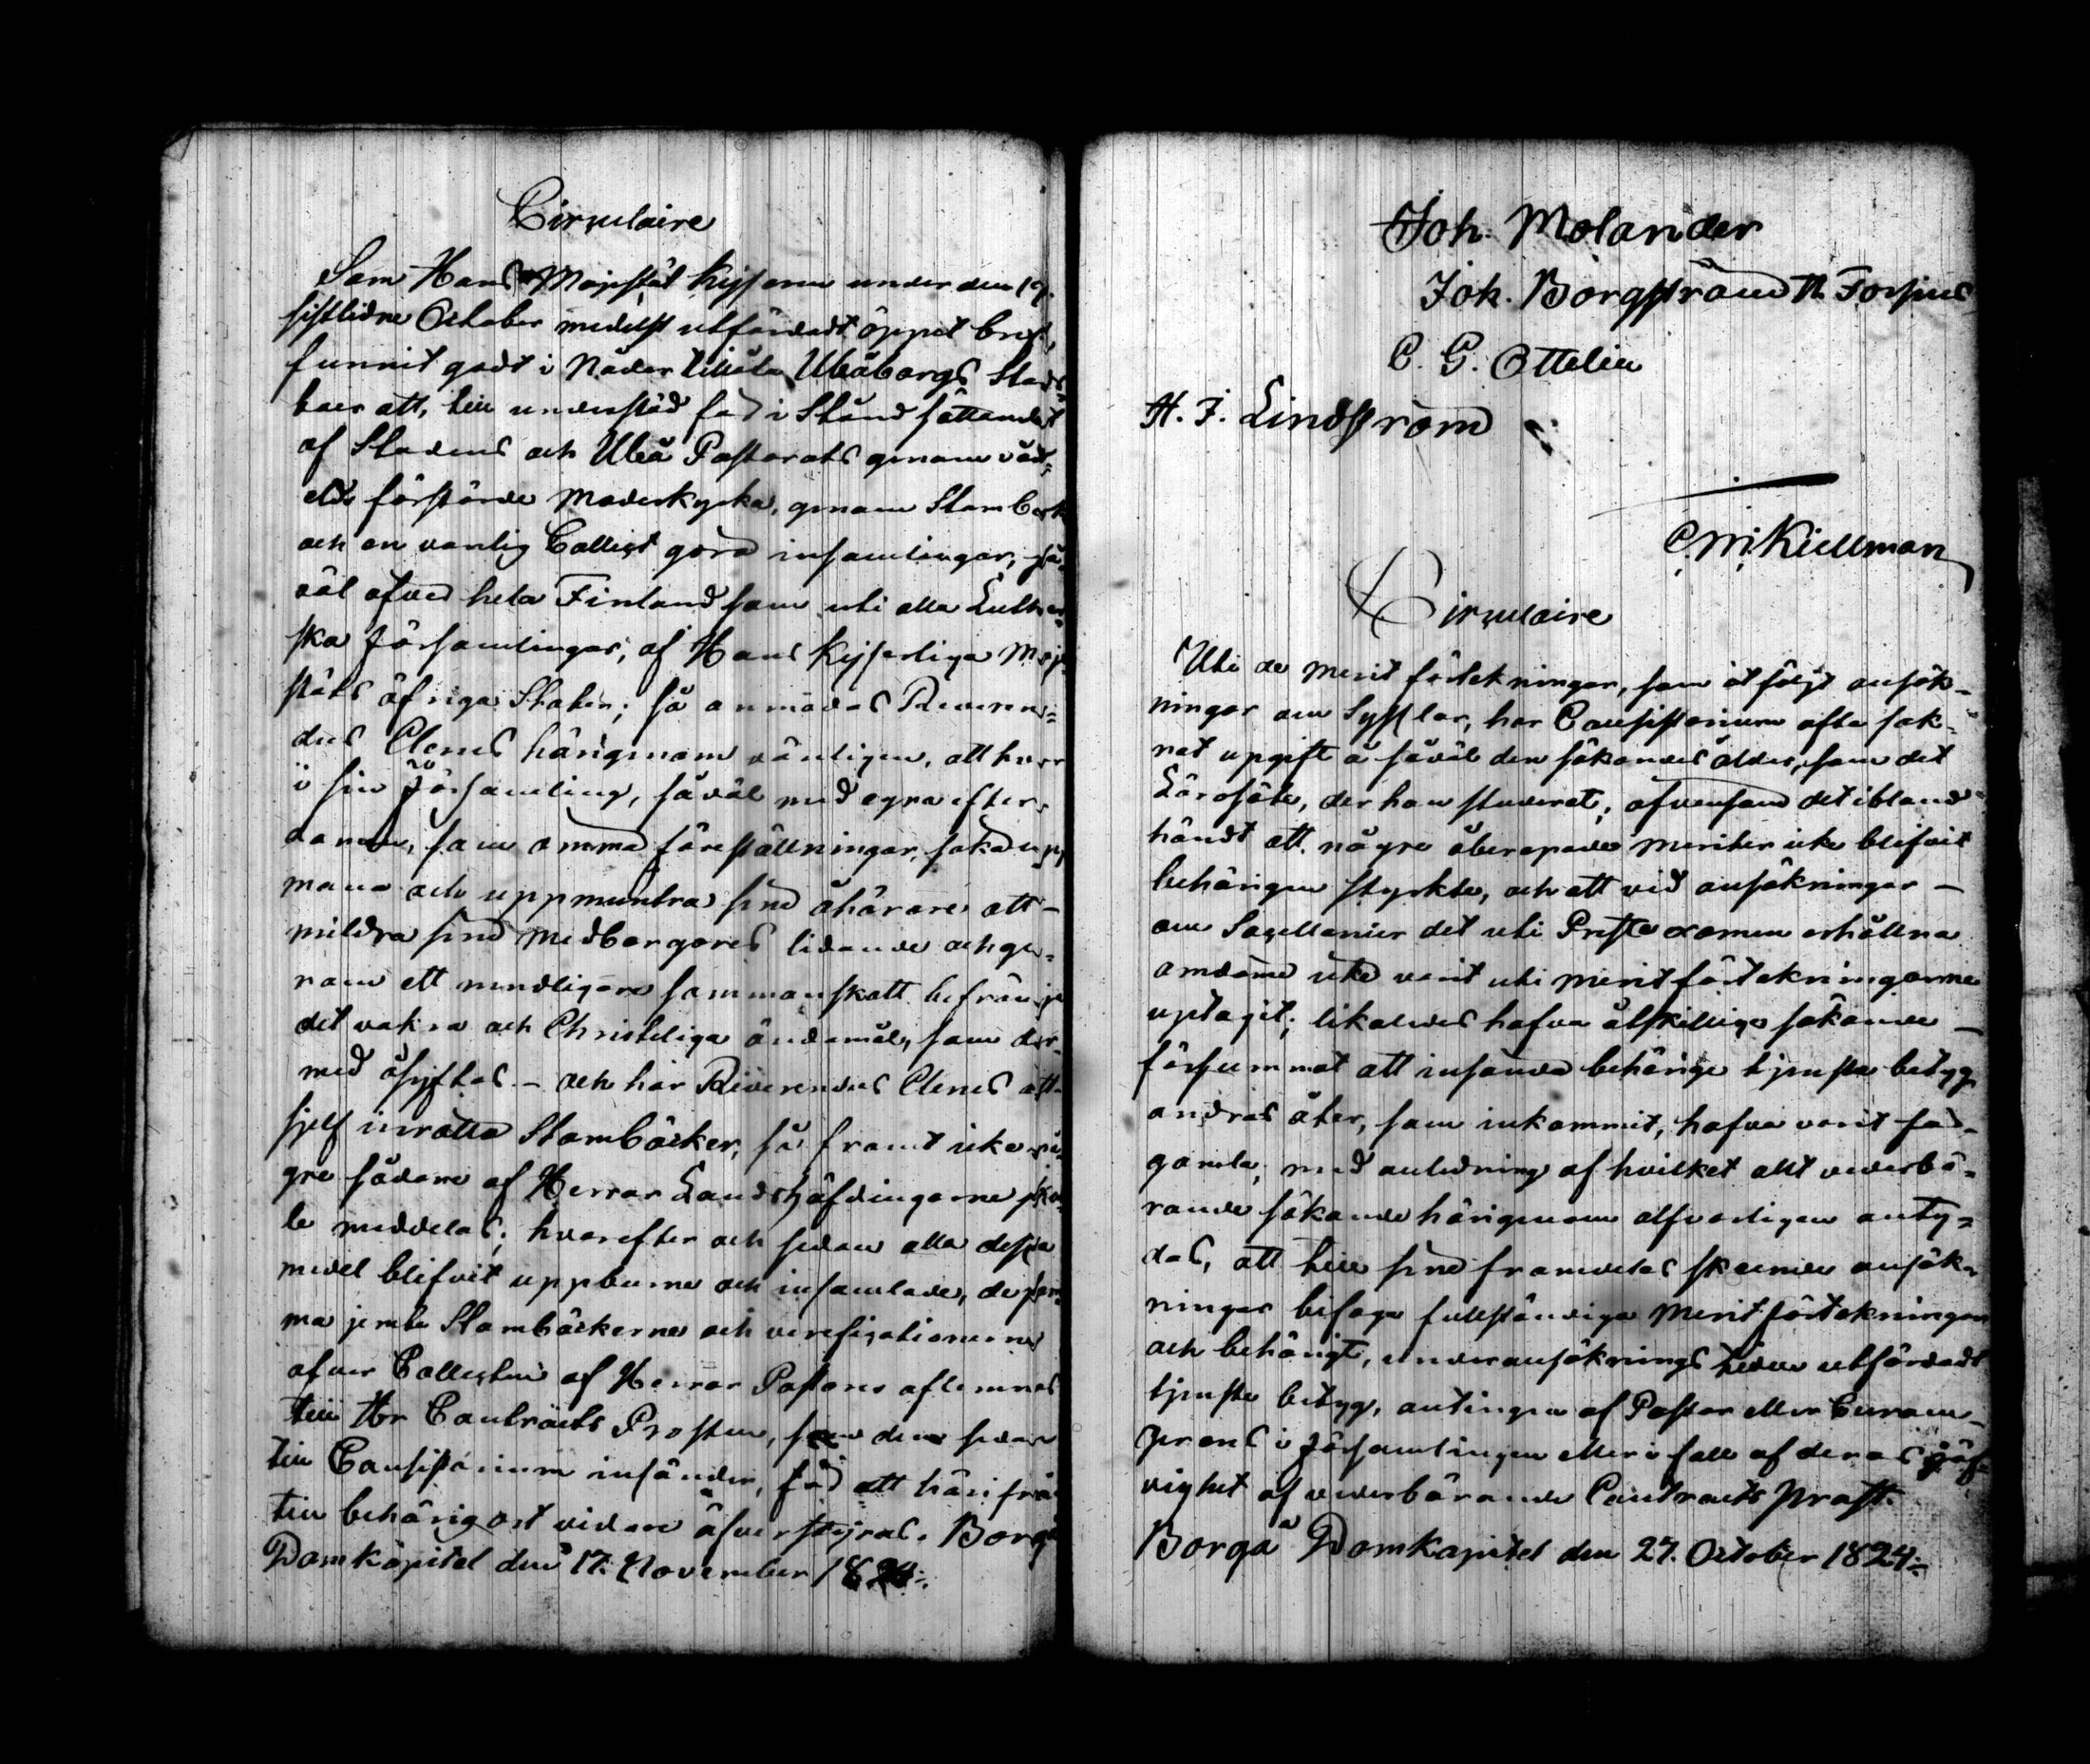 Circulaire
Som Hans Majestät Kejsaren under den 19.
sistledne October medelst utfärdadt öppet bref,
funnit godt i Nåder tillåta Uleåborgs Stads
boer att, till understöd för i Stånd sättandet
af Stadens och Uleå Pastorats genom våd-
eld förstörde Moderkyrka, genom Stambok
och en vanlig Collect göra insamlingar, så
väl öfver hela Finland som uti alla Luther-
ska Församlingar, af Hans Kejserliga Maje
stäts öfriga Stater; så anmodas Reveren-
dus Clerus härigenom vänligen, att hvar
i sin Församling, såväl med egna efter-
dömen, som ömma föreställningar, söka upp
mana och uppmuntra sine åhörare att
mildra sine Medborgares lidande och ge-
nom ett
det vakra och Christeliga ändamål, som der-
med åsyftas. – och har Reverendus Clerus att
sjelf inrätta Stamböcker, så framt icke nå-
gre sådane af Herrar Landshöfdingarne sku-
le meddelas; hvarefter och sedan alla dessa
medel blifvit uppburne och insamlade, de sam-
ma jemte Stamböckerne och verificationerne
öfver Collecten af Herrar Pastorer aflemnas
till Hr Contracts Prosten, som dem sedan
till Consistorium insänder, för att härifrån
till behörig ort vidare öfverstyras. Borgå
Domkapitel den 17. November 1824.
Joh. Molander
Joh. Borgström A. Forsius
C. G. Ottelin
A. J. Lindström
C M Kiellman
Circulaire
Uti de Merit förtekningar, som åtföljt ansök-
ningar om Sysslor, har Consistorium ofta sak-
nat upgift å såväl den sökandes ålder, som det
Lärosäte, der han studerat; äfvensom det ibland
händt att någre åberopade Meriter icke blifvit
behörigen styrkte, och att vid ansökningar –
om Sacellanier det uti Prestexamen erhållna
omdöme icke varit uti Meritförtekningarne
uptagit; likaledes hafva åtskillige sökande –
försummat att insända behörige tjenste betyg
andras åter, som inkommit, hafva varit för
gamla, med anledning af hvilket allt vederbö-
rande sökande härigenom alfvarligen anty-
das, att till sine framdeles skeende ansök-
ningar bifoga fullständiga Meritförtekningar
och behörigt, under ansöknings tiden utfärdadt
tjenste betyg, antingen af Pastor eller Curam-
gerens i Församlingen eller i fall af deras jäf-
vighet af vederbörande Contracts Prost.
Borgå Domkapitel den 27. October 1824.